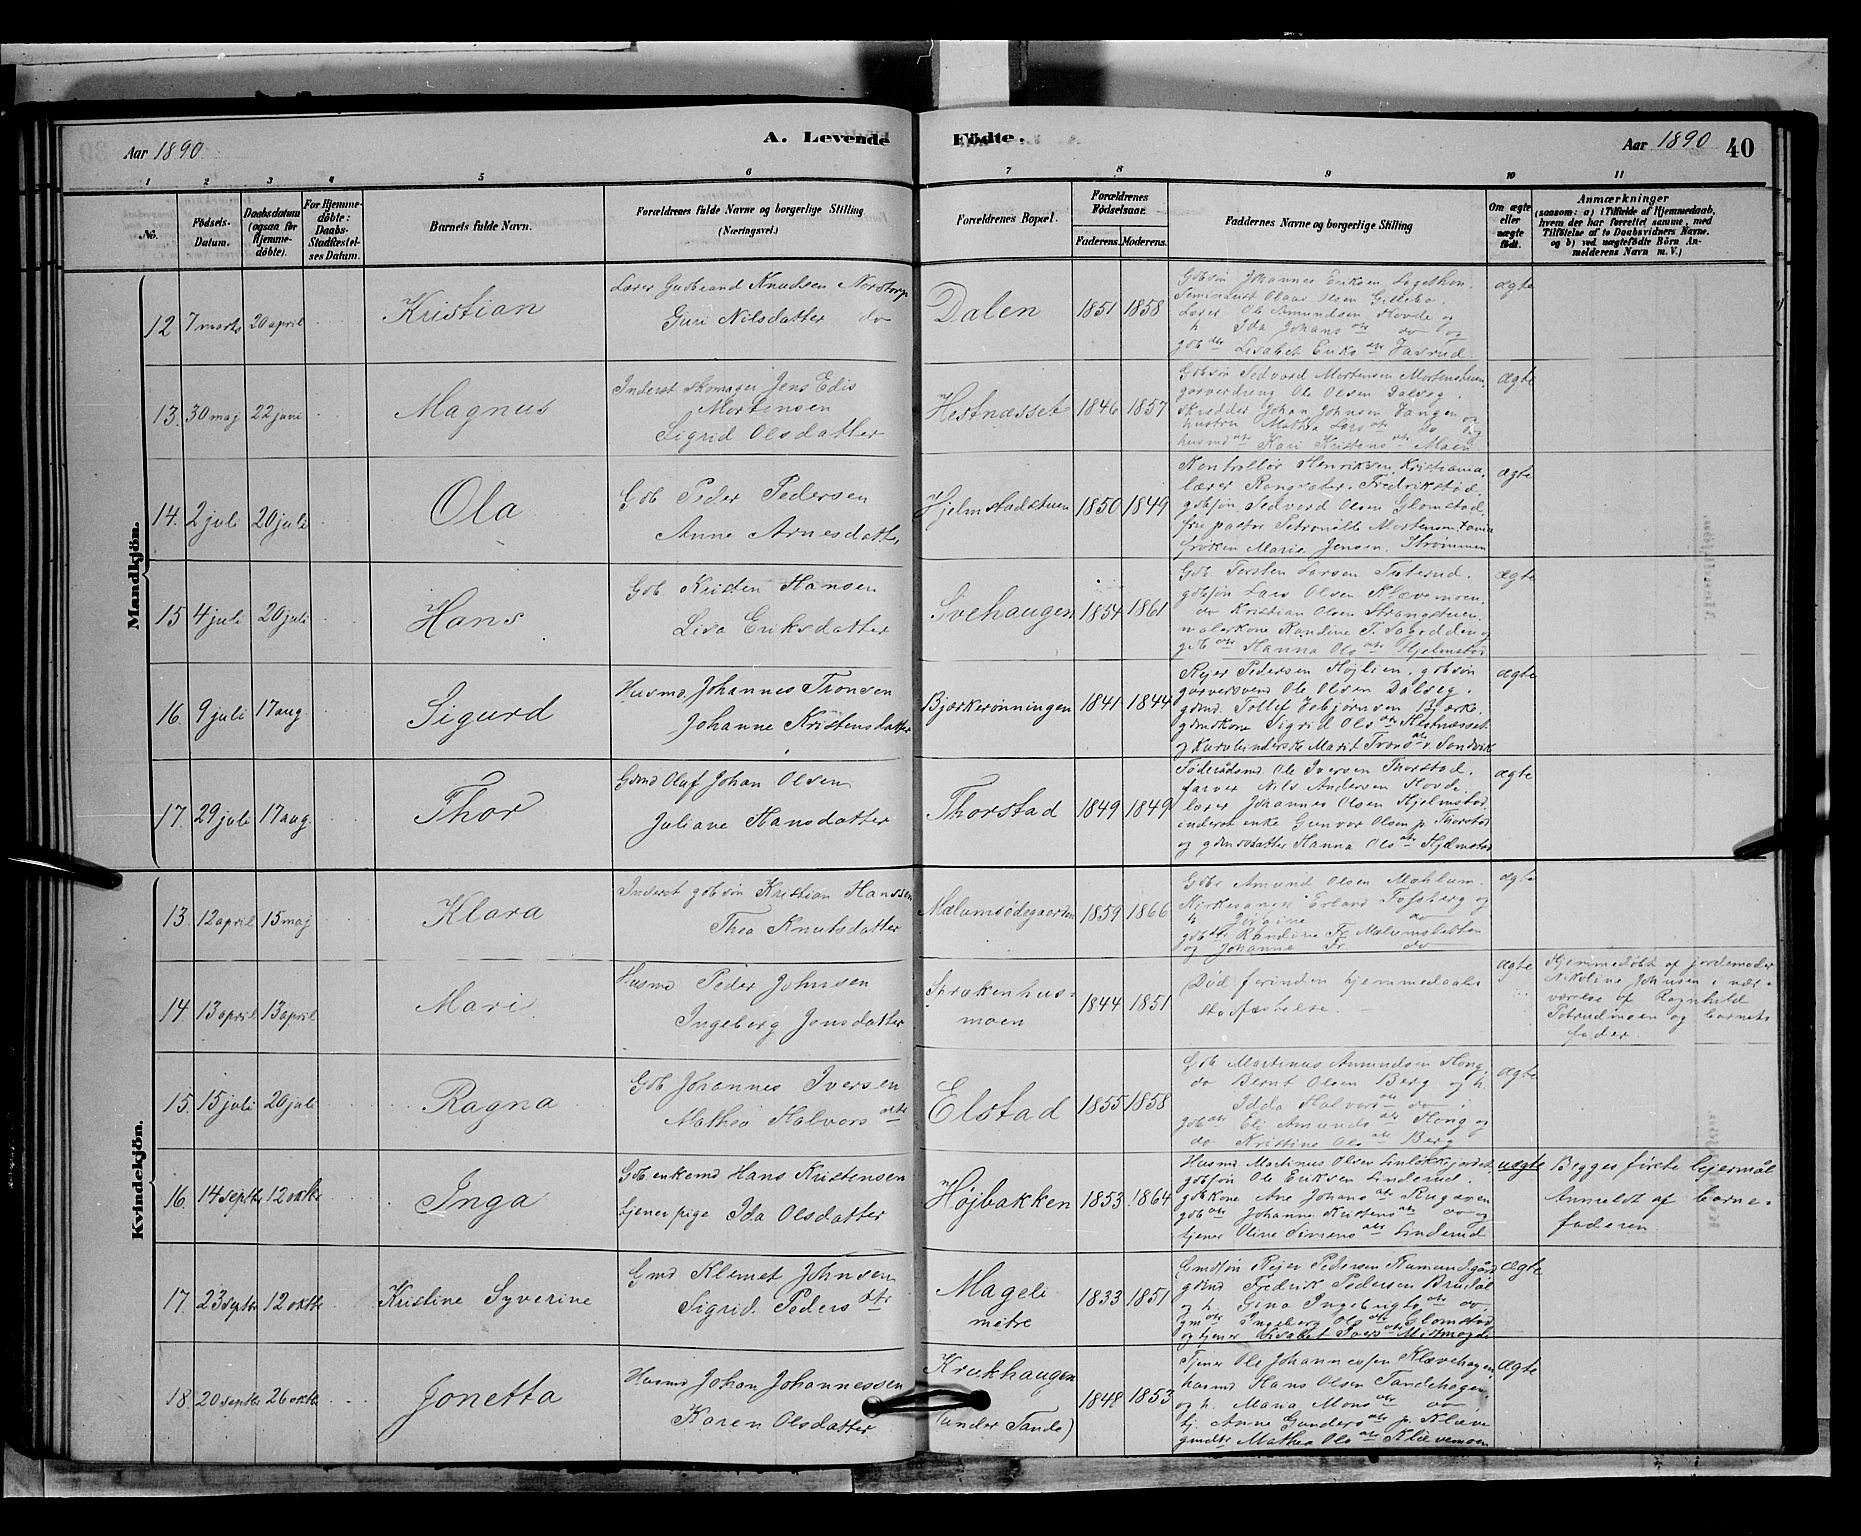 Aar 1890
A. Levende
Födte.
Aar 1890
40
1 2 3 4 5 6 7 8 9 10 11
No.
Födsels-
Datum.
Daabsdatum
(ogsaa for
Hjemme-
döbte).
For Hjemme-
döbte:
Daabs-
Stadfæstel-
ses Datum.
Barnets fulde Navn.
Forældrenes fulde Navne og borgerlige Stilling
(Næringsvei.)
Forældrenes Bopæl.
Forældrenes
Födselsaar.
Faderens.
Moderens.
Faddernes Navne og borgerlige Stilling
Om ægte
eller
uægte
födt.
Anmærkninger
(saasom: a) i Tilfælde af Hjemmedaab,
hvem der har forrettet samme, med
Tilföielse af to Daabsvidners Navne.
og b) ved uægtefödte Börn An-
melderens Navn m. V.)
Mandkjön.
12 7 marts 20 april
Kristian
Lærer Gudbrand Knudsen Norstorp
Guri Nilsdatter do
Dalen
1851 1858
Gdbsön Johannes Eriksen
Seminarist Olaus Olsen
Lærer Ole Amundsen Hovde og
h. Ida Johans dtr do og
gdb dtr Lisabet Eriks dtr
ægte
13. 30 maj 22 juni
Magnus
Inderst skomager Jens Edis
Mortensen
Sigrid Olsdatter
Hestnæsset
1846 1857
Gdbsön Sedvard Mortensen Mortenstuen
garverdreng Ole Olsen Dalseg.
skrædder Johan Johnsen Vangen og
hustru Mathea Lars dtr do og
husmd dtr Kari Kristens dtr Moen
ægte
14. 2 juli 20 juli
Ola
Gdb Peder Pedersen
Anne Arnesdatter
Hjelmstadstuen
1850 1849
Kontrollör Henriksen, Kristiania,
lærer Fredrikstad,
gdbsön Sedvard Olsen Glomstad,
fru pastor Petronille Mortensen,
fröken Marie Jensen. Strømmen
ægte
15 4 juli 20 juli
Hans
Gdb Kristen Hansen
Lisa Eriksdatter
Svehaugen
1854 1861
Gdb Torsten Larsen
gdbsön Lars Olsen Klævemoen,
do Kristian Olsen
malerkone Randine
gdb dtr Hanna Ols dtr Hjelmstad
ægte
16. 9 juli 17 aug
Sigurd
Husmd Johannes Tronsen
Johanne Kristensdatter
Bjørkerønningen
1841 1844
Rejer Pedersen Højlien, gdbsön
garversvend Ole Olsen Dalseg.
gdmd. Tollef Bjørke.
gdmdkone Sigrid Ols dtr Hestnæsset
og Kurvbinderske Marit Trons dtr v. Sandvik
ægte
17. 29 juli 17 aug.
Thor
Gdmd Oluf Johan Olsen
Juliane Hansdatter
Thorstad
1849 1849
Föderådsmd. Ole Iversen Thorstad.
farver Nils Andersen Hovde.
lærer Johannes Olsen Hjelmstad,
inderst enke Gunvor Olsen p. Thorstad
og gdmdsdatter Hanna Ols dtr Hjelmstad
ægte
Kvindekjön.
13. 12 april 15 maj
Klara
Inderst gdbsön Kristian Hanssen
Thea Knutsdatter
Mælumsødegaarden
1859 1866
Gdbr Amund Olsen Mæhlum.
Kirkesanger Erland Fossberg og
h. do
gdb dtr Randine Fr. Mælumsletten
og Johanne Fr. do
ægte
14. 13 april 13 april
Mari
Husmd Peder Johnsen
Ingeborg Jonsdatter
Sprakenhus-
moen
1844 1851
Død forinden hjemmedaabs
stadfæstelse. —
ægte
Hjemmedøbt af jordemoder
Nikoline Johnsen i nær-
værelse af Ragnhild
Potrudmoen og barnets
fader.
15. 15 juli 20 juli
Ragna
Gdb Johannes Iversen
Mathea Halvors dtr
Elstad
1855 1858
Gdb Martinus Amundsen Hong,
do Bernt Olsen Berg og h.
Idda Halvors dtr do;
gdb dtr Eli Amunds dtr Hong og
do Kristine Ols dtr Berg
ægte
16. 14 septbr 12 oktbr
Inga
Gdb enkemd Hans Kristensen
tjenerpige Ida Olsdatter
Højbakken
1853 1864
Husmd Martinus Olsen
gdbsön Ole Eriksen Linderud.
gdbkone Ane Johans dtr Rugsveen
gdb dtr Johanne Kristens dtr do og
tjener Oline Simens dtr Linderud
uægte
Begges første lejermål
Anmeldt af barne-
faderen
17. 23 septbr 12 oktbr
Kristine Syverine
Gmd Klemet Johnsen
Sigrid. Peders dtr
Mageli
nedre
1833 1851
Gmdsön Rejer Pedersen
gdmd Fredrik Pedersen
og h. Gina Ingebrigts dtr do.
gm dtr Ingeborg Ols dtr Glomstad
og tjener Lisabet Ivers dtr
Ægte
18 20 septbr 26 oktbr
Jonetta
Husmd Johan Johannessen
Karen Olsdatter
Krukhaugen
(under Tande)
1848 1853
Tjener Ole Johannessen Klævehagen,
husmd Hans Olsen Tandehagen,
og h. Maria Mons dtr do,
tj. Anne Gunders dtr p. Klæve
gmdtr Mathea Ols dtr Klævemoen
Ægte